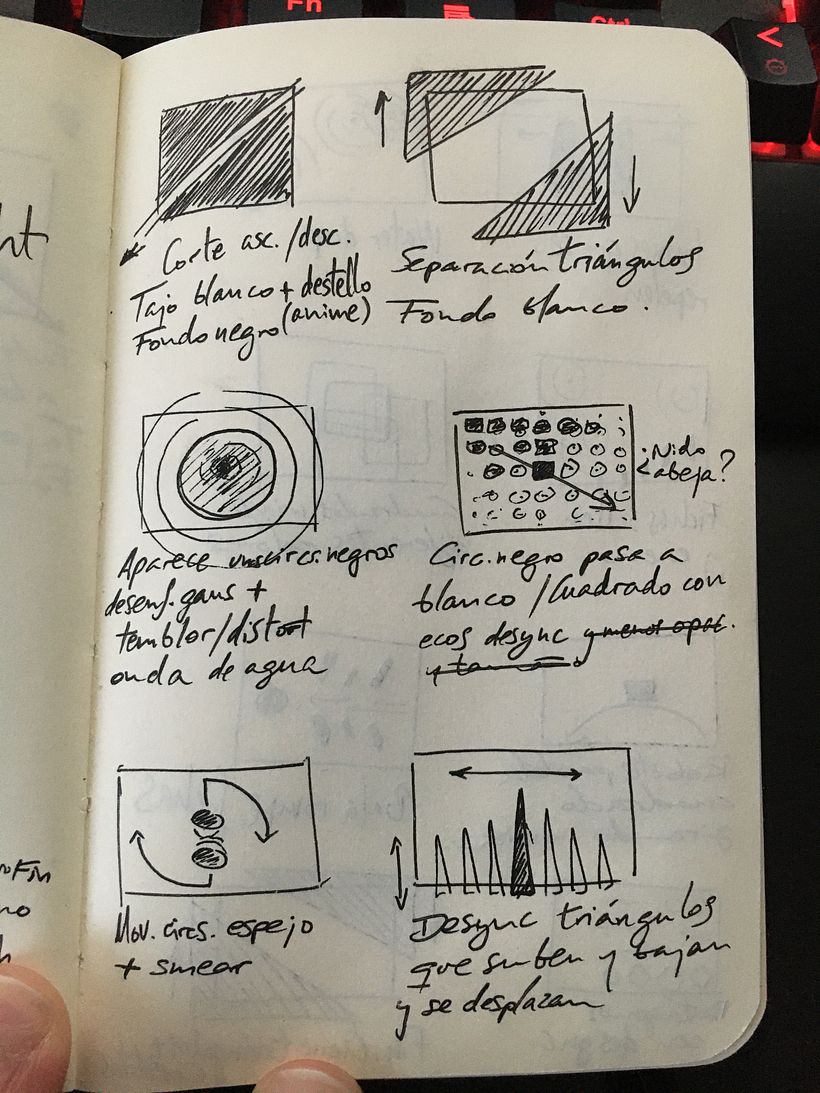 Fn
Ctrl
<
Corte asc. / desc.
Tajo blanco + destello
Fondo negro (anime)
Separación triángulos
Fondo blanco.
Aparece circs. negros
desenf. gaus +
temblor/distort
onda de agua
¿Nido
abeja?
Circ. negro pasa a
blanco / Cuadrado con
ecos desync y menos opac.
y tamaño.
Mov. circs. espejo
+ smear
Desync triángulos
que suben y bajan
y se desplazan